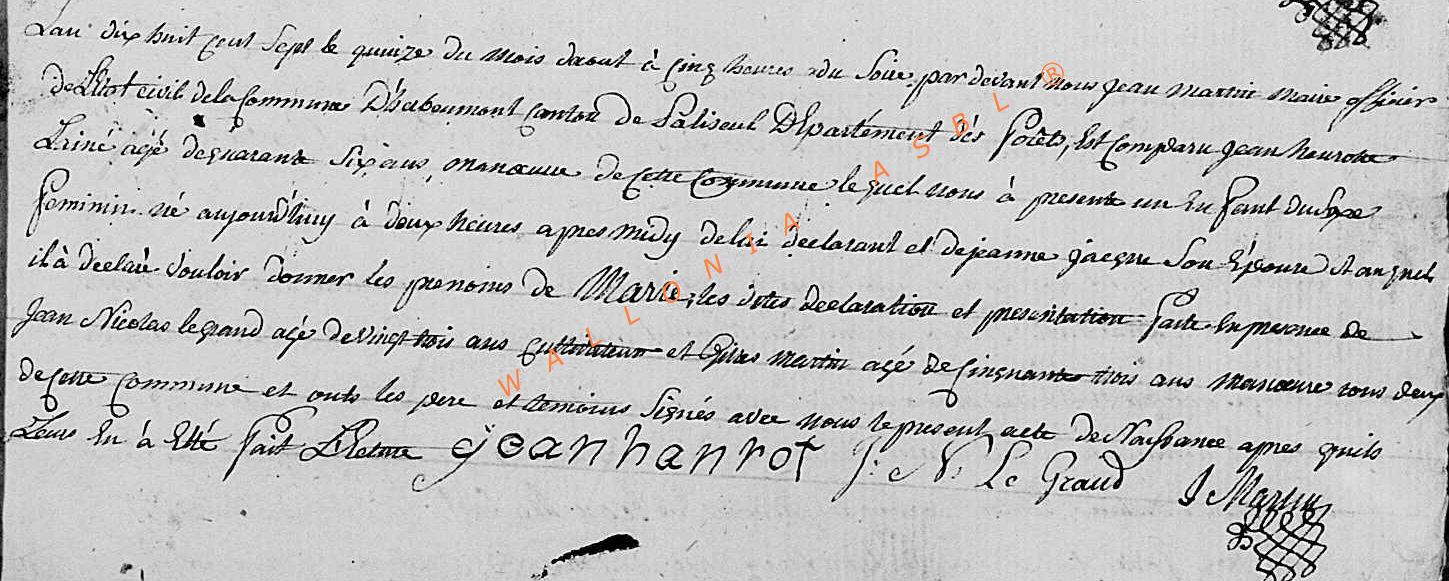 Lan dix huit cent sept le quinze du mois daout à cinq heures du Soir par devant nous jean martin maire officier
de L'Etat civil de la Commune D'herbeumont canton de Paliseul Département des forêts, Est Comparu jean henrotte
L'ainé agé de quarante Six ans, manœuvre de cette Commune lequel nous à presenté un Enfant du Sexe
feminin né aujourd'huy à deux heures apres midy de lui declarant et de jeanne jacque Son Epouse et auquel
il à declaré vouloir donner les prenoms de Marie, les dites declaration et presentation faite En presence de
Jean Nicolas legrand agé de vingt trois ans Cultivateur et martin agé de Cinquante trois ans manœuvre tous deux
de Cette Commune et onts les pere et temoins Signés avec nous le present acte de Naissance apres quils
Leurs En à Eté fait Lecture jean hanrot J: N: Le Grand J Martin
WALLONIA ASBL ®